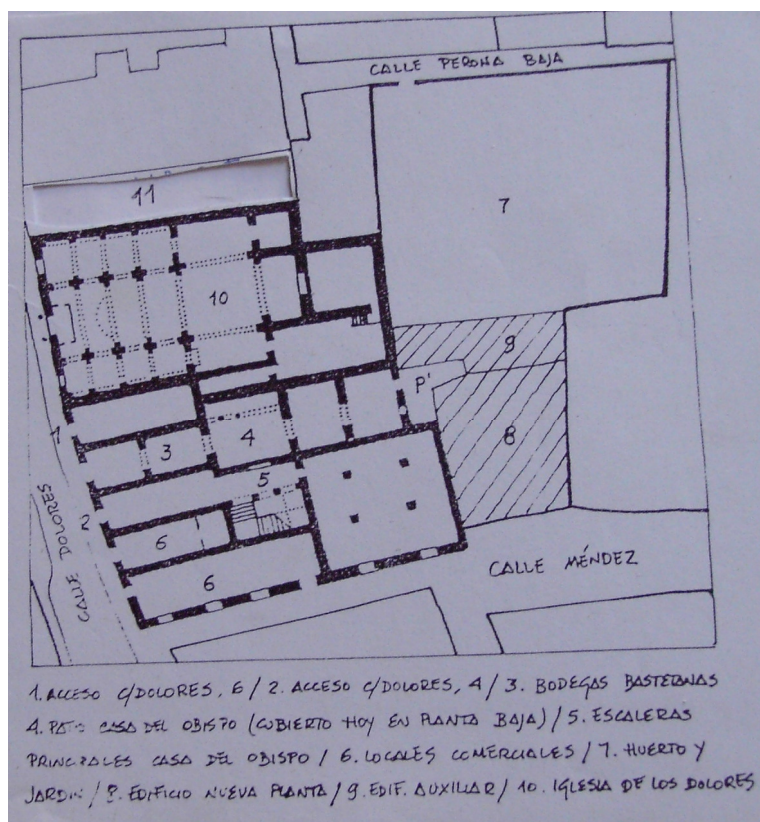 CALLE PERONA BAJA
11
7
10
9
P'
8
1
3
4
5
2
6
6
CALLE DOLORES
CALLE MÉNDEZ
1. ACCESO C/DOLORES, 6 / 2. ACCESO C/DOLORES, 4 / 3. BODEGAS BASTETANAS
4. PATIO CASA DEL OBISPO (CUBIERTO HOY EN PLANTA BAJA) / 5. ESCALERAS
PRINCIPALES CASA DEL OBISPO / 6. LOCALES COMERCIALES / 7. HUERTO Y
JARDIN / 8. EDIFICIO NUEVA PLANTA / 9. EDIF. AUXILIAR / 10. IGLESIA DE LOS DOLORES